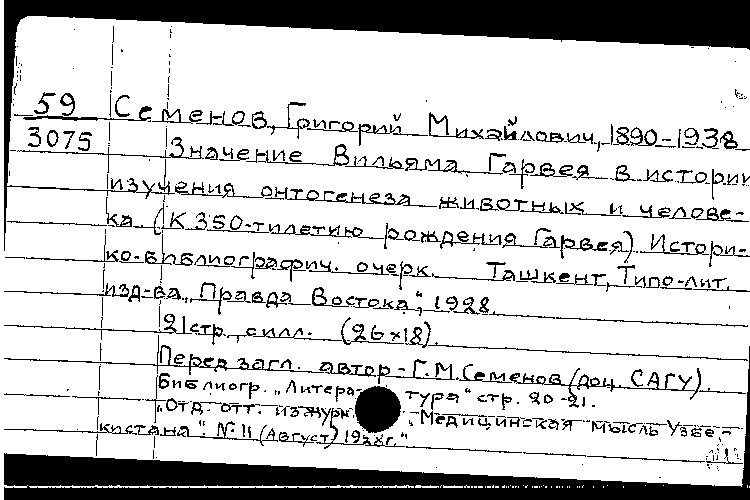 59 Семенов, Григорий Михайлович, 1890-1938
3075 Значение Вильяма Гарвея в истории
изучения онтогенеза животных и челове-
ка (К 350-тилетию рождения Гарвея) Истори-
ко-библиографич. очерк. Ташкент, Типо-лит.
изд-ва „Правда Востока", 1928.
21 стр., с илл. (26×18).
Перед загл. автор - Г.М.Семенов (доц. САГУ).
Библиогр. „Литература" стр. 20-21.
„Отд. отт. из журн. „Медицинская мысль Узбе-
кистана". № 11 (Август) 1928г."